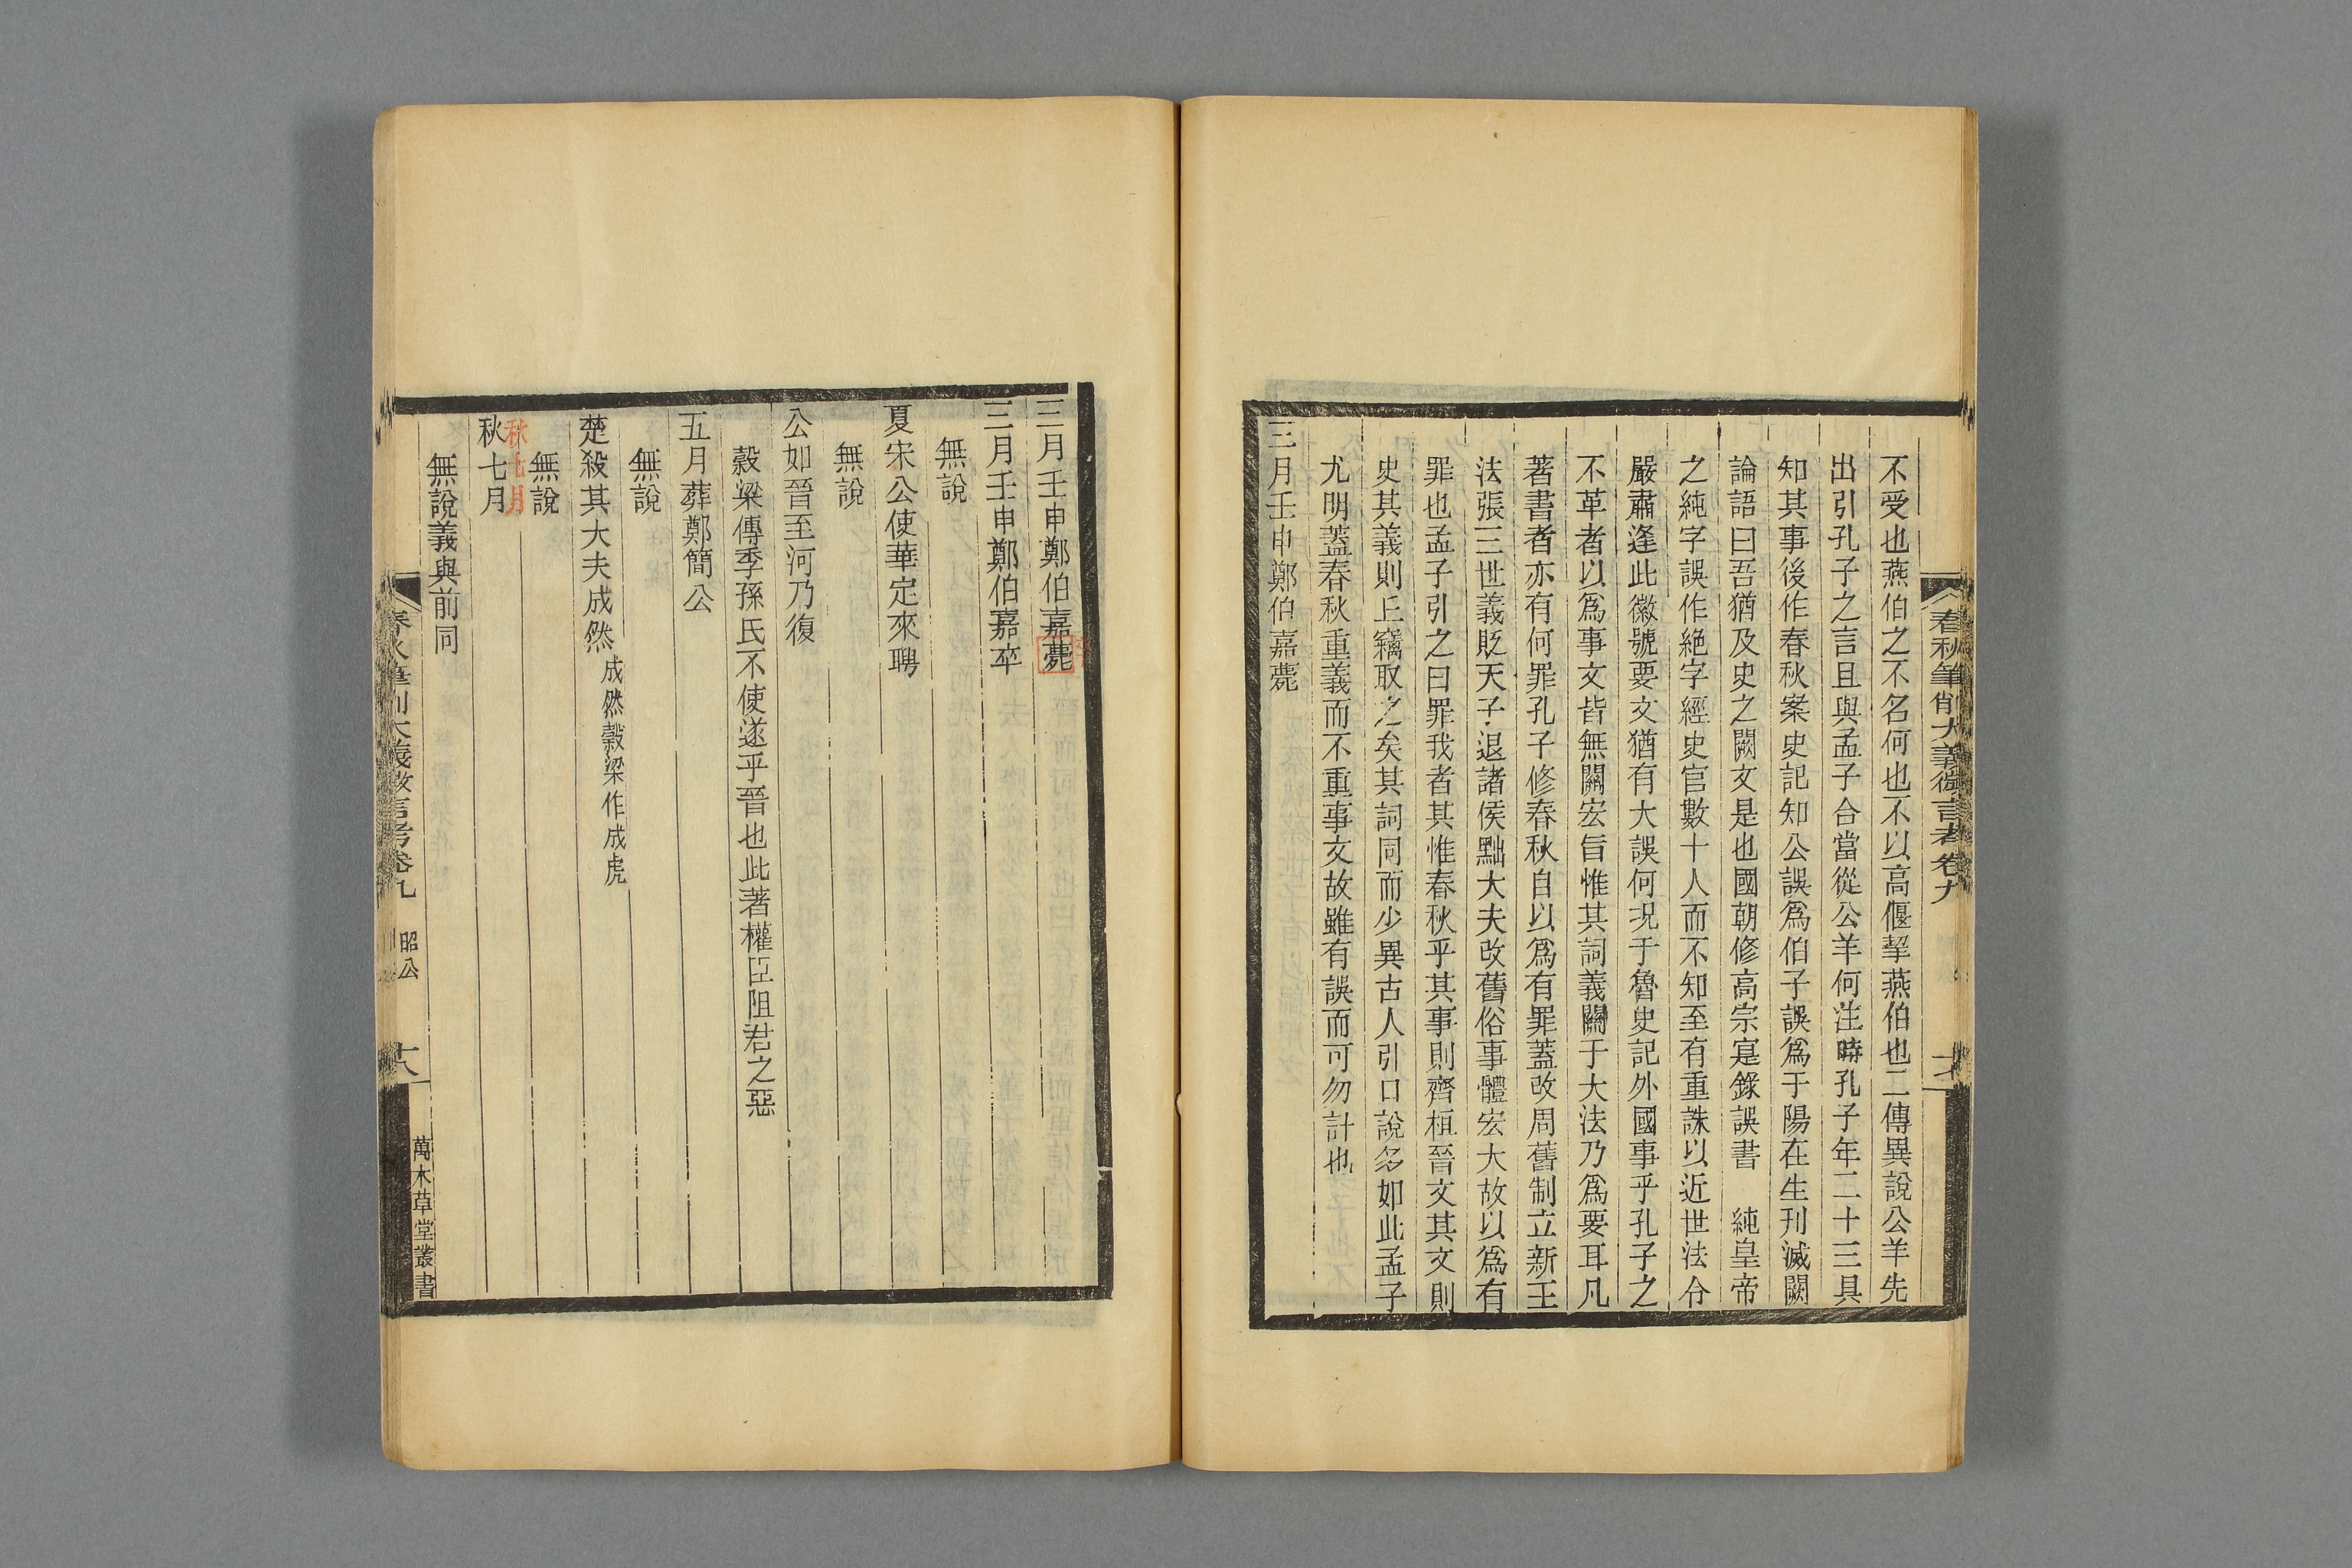 春秋筆削大義微言考卷九
不受也燕伯之不名何也不以高偃挈燕伯也二傳異說公羊先
出引孔子之言且與孟子合當從公羊何注時孔子年二十三具
知其事後作春秋案史記知公誤爲伯子誤爲于陽在生刊滅闕
論語曰吾猶及史之闕文是也國朝修高宗寔錄誤書　純皇帝
之純字誤作絶字經史官數十人而不知至有重誅以近世法令
嚴肅逢此徽號要文猶有大誤何况于魯史記外國事乎孔子之
不革者以爲事文皆無關宏旨惟其詞義關于大法乃爲要耳凡
著書者亦有何罪孔子修春秋自以爲有罪蓋改周舊制立新王
法張三世義貶天子退諸侯黜大夫改舊俗事體宏大故以爲有
罪也孟子引之曰罪我者其惟春秋乎其事則齊桓晉文其文則
史其義則丘竊取之矣其詞同而少異古人引口說多如此孟子
尤明蓋春秋重義而不重事文故雖有誤而可勿計也
三月壬申鄭伯嘉薨
三月壬申鄭伯嘉薨
卒
三月壬申鄭伯嘉卒
無說
夏宋公使華定來聘
無說
公如晉至河乃復
穀梁傳季孫氏不使遂乎晉也此著權臣阻君之惡
五月葬鄭簡公
無說
楚殺其大夫成然成然穀梁作成虎
無說
秋七月
秋七月
無說義與前同
春秋筆削大義微言考卷九　昭公　十八
萬木草堂叢書